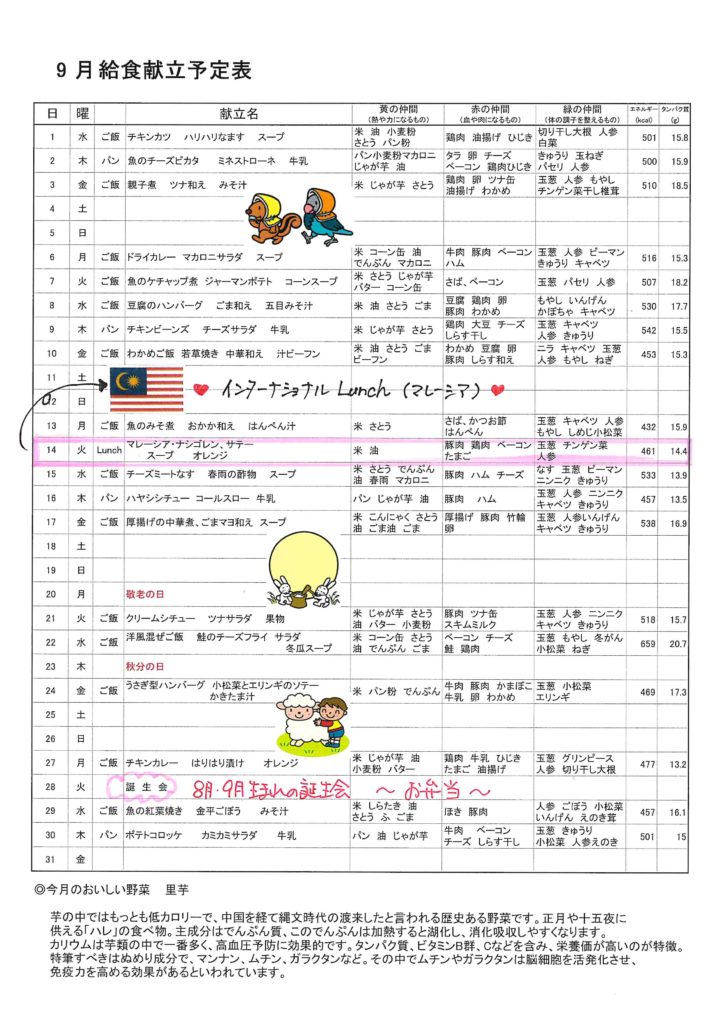 9月給食献立予定表
日 曜 献立名 黄の仲間 赤の仲間 緑の仲間 エネルギー タンパク質
(熱や力になるもの) (血や肉になるもの) (体の調子を整えるもの) (kcal) (g)
1 水 ご飯 チキンカツ ハリハリなます スープ 米 油 小麦粉 鶏肉 油揚げ ひじき 切り干し大根 人参 501 15.8
さとう パン粉 白菜
2 木 パン 魚のチーズピカタ ミネストローネ 牛乳 パン小麦粉マカロニ タラ 卵 チーズ きゅうり 玉ねぎ 500 15.9
じゃが芋 油 ベーコン 鶏肉ひじき パセリ 人参
3 金 ご飯 親子煮 ツナ和え みそ汁 米 じゃが芋 さとう 鶏肉 卵 ツナ缶 玉葱 人参 もやし 510 18.5
油揚げ わかめ チンゲン菜干し椎茸
4 土
5 日
6 月 ご飯 ドライカレー マカロニサラダ スープ 米 コーン缶 油 牛肉 豚肉 ベーコン 玉葱 人参 ピーマン 516 15.3
でんぷん マカロニ ハム きゅうり キャベツ
7 火 ご飯 魚のケチャップ煮 ジャーマンポテト コーンスープ 米 さとう じゃが芋 さば、ベーコン 玉葱 パセリ 人参 507 18.2
バター コーン缶
8 水 ご飯 豆腐のハンバーグ ごま和え 五目みそ汁 米 油 さとう ごま 豆腐 鶏肉 卵 もやし いんげん 530 17.7
豚肉 わかめ かぼちゃ キャベツ
9 木 パン チキンビーンズ チーズサラダ 牛乳 米 じゃが芋 さとう 鶏肉 大豆 チーズ 玉葱 キャベツ 542 15.5
しらす干し 人参 きゅうり
10 金 ご飯 わかめご飯 若草焼き 中華和え 汁ビーフン 米 油 さとう ごま わかめ 豆腐 卵 ニラ キャベツ 玉葱 453 15.3
ビーフン 豚肉 しらす和え 人参 もやし ねぎ
11 土
12 日
インターナショナル Lunch (マレーシア)
13 月 ご飯 魚のみそ煮 おかか和え はんぺん汁 米 さとう さば、かつお節 玉葱 キャベツ 人参 432 15.9
はんぺん もやし しめじ小松菜
14 火 Lunch マレーシア・ナシゴレン、サテー 米 油 豚肉 鶏肉 ベーコン 玉葱 チンゲン菜 461 14.4
スープ オレンジ たまご 人参
15 水 ご飯 チーズミートなす 春雨の酢物 スープ 米 さとう でんぷん 豚肉 ハム チーズ なす 玉葱 ピーマン 533 13.9
油 春雨 マカロニ ニンニク きゅうり
16 木 パン ハヤシシチュー コールスロー 牛乳 パン じゃが芋 油 豚肉 ハム 玉葱 人参 ニンニク 457 13.5
キャベツ きゅうり
17 金 ご飯 厚揚げの中華煮、ごまマヨ和え スープ 米 こんにゃく さとう 厚揚げ 豚肉 竹輪 玉葱 人参いんげん 538 16.9
油 ごま油 ごま 卵 キャベツ きゅうり
18 土
19 日
20 月 敬老の日
21 火 ご飯 クリームシチュー ツナサラダ 果物 米 じゃが芋 さとう 豚肉 ツナ缶 玉葱 人参 ニンニク 518 15.7
油 バター 小麦粉 スキムミルク キャベツ きゅうり
22 水 ご飯 洋風混ぜご飯 鮭のチーズフライ サラダ 米 コーン缶 さとう ベーコン チーズ 玉葱 もやし 冬がん 659 20.7
冬瓜スープ 油 でんぷん ごま 鮭 鶏肉 小松菜 ねぎ
23 木 秋分の日
24 金 ご飯 うさぎ型ハンバーグ 小松菜とエリンギのソテー 米 パン粉 でんぷん 牛肉 豚肉 かまぼこ 玉葱 小松菜 469 17.3
かきたま汁 牛乳 卵 わかめ エリンギ
25 土
26 日
27 月 ご飯 チキンカレー はりはり漬け オレンジ 米 じゃが芋 油 鶏肉 牛乳 ひじき 玉葱 グリンピース 477 13.2
小麦粉 バター たまご 油揚げ 人参 切り干し大根
28 火 誕生会 8月・9月生まれの誕生会 〜 お弁当 〜
29 水 ご飯 魚の紅葉焼き 金平ごぼう みそ汁 米 しらたき 油 ほき 豚肉 人参 ごぼう 小松菜 457 16.1
さとう ふ ごま いんげん えのき茸
30 木 パン ポテトコロッケ カミカミサラダ 牛乳 パン 油 じゃが芋 牛肉 ベーコン 玉葱 きゅうり 501 15
チーズ しらす干し 小松菜 人参えのき
31 金
◎今月のおいしい野菜 里芋
芋の中ではもっとも低カロリーで、中国を経て縄文時代の渡来したと言われる歴史ある野菜です。正月や十五夜に
供える「ハレ」の食べ物。主成分はでんぷん質、このでんぷんは加熱すると湖化し、消化吸収しやすくなります。
カリウムは芋類の中で一番多く、高血圧予防に効果的です。タンパク質、ビタミンB群、Cなどを含み、栄養価が高いのが特徴。
特筆すべきはぬめり成分で、マンナン、ムチン、ガラクタンなど。その中でムチンやガラクタンは脳細胞を活発化させ、
免疫力を高める効果があるといわれています。